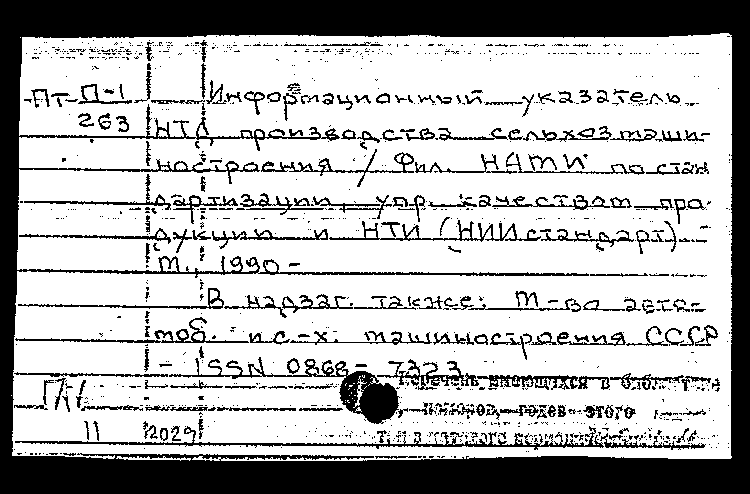 ПТ П-1 Информационный указатель
263 НТД производства сельхозмаши-
ностроения / Фил. НАТИ по стан
дартизации, упр. качеством про-
дукции и НТИ (НИИстандарт). -
М., 1990 -
В надзаг. также: М-во авто-
моб. и с.-х. машиностроения СССР
- ISSN 0868-7323
Перечень имеющихся в библиотеке
номеров, годов этого
11 2029